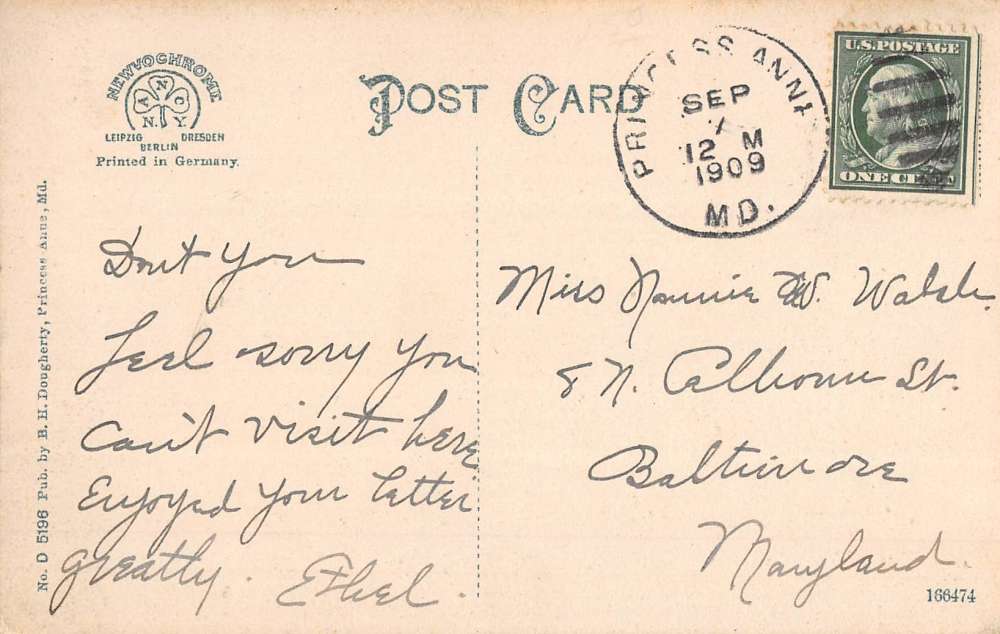 NEWVOCHROME
A N C
N. Y.
LEIPZIG DRESDEN
BERLIN
Printed in Germany.
POST CARD
PRINCESS ANNE
SEP
12 M
1909
MD.
U.S. POSTAGE
ONE CENT
No. D 5196 Pub. by B. H. Dougherty, Princess Anne, Md.
Don't you
feel sorry you
can't visit here
Enjoyed your letter
greatly. Ethel.
Miss Nannie W. Walsh.
8 N. Calhoun St.
Baltimore
Maryland.
166474